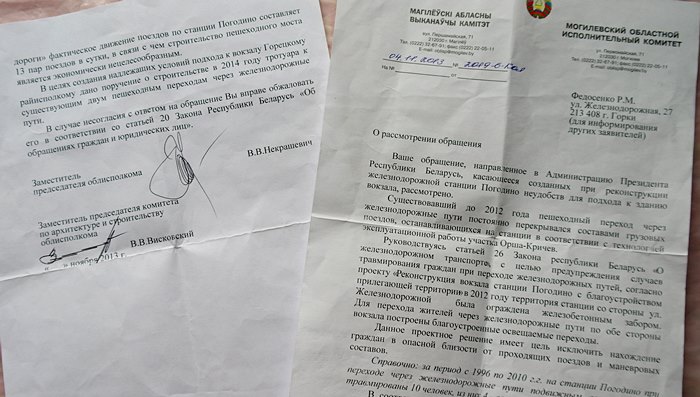 МАГІЛЁЎСКІ АБЛАСНЫ
ВЫКАНАЎЧЫ КАМІТЭТ
вул. Першамайская, 71
212030 г. Магілёў
Тэл. (0222) 32-67-91; факс (0222) 22-05-11
E-mail: oblisp@mogilev.by
МОГИЛЕВСКИЙ ОБЛАСТНОЙ
ИСПОЛНИТЕЛЬНЫЙ КОМИТЕТ
ул. Первомайская, 71
212030 г. Могилев
Тел. (0222) 32-67-91; факс (0222) 22-05-11
E-mail: oblisp@mogilev.by
04.11.2013 №
На № от
Федосенко Р.М.
ул. Железнодорожная, 27
213 408 г. Горки
(для информирования
других заявителей)
О рассмотрении обращения
Ваше обращение, направленное в Администрацию Президента
Республики Беларусь, касающееся созданных при реконструкции
железнодорожной станции Погодино неудобств для подхода к зданию
вокзала, рассмотрено.
Существовавший до 2012 года пешеходный переход через
железнодорожные пути постоянно перекрывался составами грузовых
поездов, останавливающихся на станции в соответствии с технологией
эксплуатационной работы участка Орша-Кричев.
Руководствуясь статьей 26 Закона республики Беларусь «О
железнодорожном транспорте», с целью предупреждения случаев
травмирования граждан при переходе железнодорожных путей, согласно
проекту «Реконструкция вокзала станции Погодино с благоустройством
прилегающей территории» в 2012 году территория станции со стороны ул.
Железнодорожной была ограждена железобетонным забором.
Для перехода жителей через железнодорожные пути по обе стороны
вокзала построены благоустроенные освещаемые переходы.
Данное проектное решение имеет цель исключить нахождение
граждан в опасной близости от проходящих поездов и маневровых
составов.
Справочно: за период с 1996 по 2010 г.г. на станции Погодино при
переходе через железнодорожные пути подвижным
травмированы 10 человек, из них 4
В соот
дороги» фактическое движение поездов по станции Погодино составляет
13 пар поездов в сутки, в связи с чем строительство пешеходного моста
является экономически нецелесообразным.
В целях создания надлежащих условий подхода к вокзалу Горецкому
райисполкому дано поручение о строительстве в 2014 году тротуара к
существующим двум пешеходным переходам через железнодорожные
пути.
В случае несогласия с ответом на обращение Вы вправе обжаловать
его в соответствии со статьей 20 Закона Республики Беларусь «Об
обращениях граждан и юридических лиц».
Заместитель
председателя облисполкома В.В.Некрашевич
Заместитель председателя комитета
по архитектуре и строительству
облисполкома В.В.Висковский
«__» ноября 2013 г.